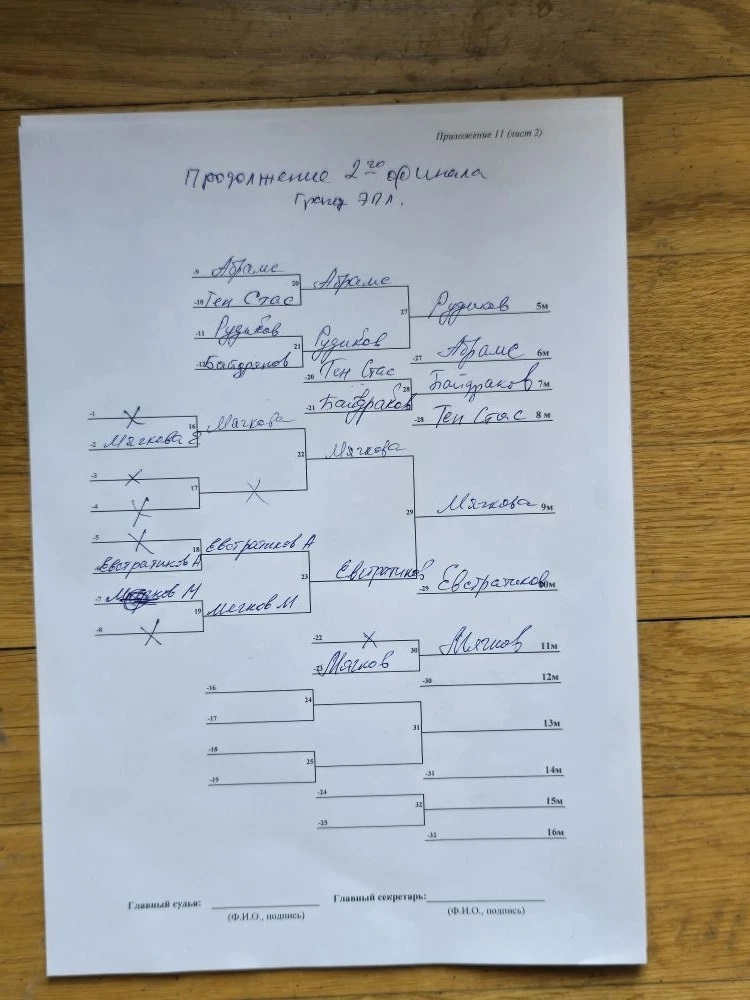 Приложение 11 (лист 2)
Продолжение 2го финала
-9 Абрамс
20 Абрамс
-10 Тен Стас
27 Рудиков 5м
-11 Рудиков
21 Рудиков
-12 Байдраков
-27 Абрамс 6м
-20 Тен Стас
28 Байдраков 7м
-21 Байдраков
-28 Тен Стас 8м
-1 X
16 Мягкова
-2 Мягкова Е
22 Мягкова
-3 X
17 X
-4 X
29 Мягкова 9м
-5 X
18 Евстратиков А
Евстратиков А
23 Евстратиков
-29 Евстратиков 10м
-7 М
19 Мягков М
-8 X
-22 X
30 Мягков 11м
-23 Мягков
-30 12м
-16
24
-17
31 13м
-18
25
-19
-31 14м
-24
32 15м
-25
-32 16м
Главный судья: Главный секретарь:
(Ф.И.О., подпись) (Ф.И.О., подпись)